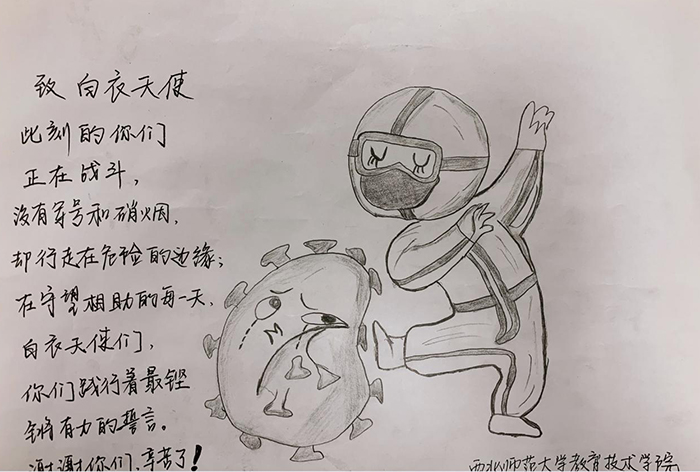 致 白衣天使
此刻的你们
正在战斗，
没有军号和硝烟，
却行走在危险的边缘；
在守望相助的每一天，
白衣天使们，
你们践行着最铿
锵有力的誓言。
谢谢你们，辛苦了！
西北师范大学教育技术学院